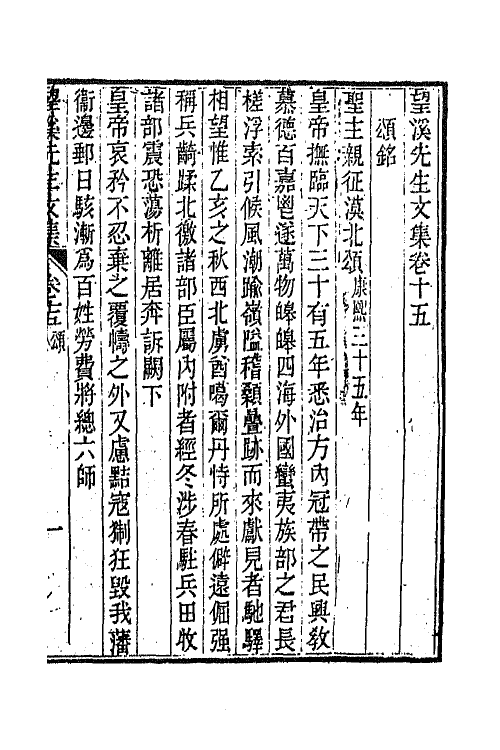 望溪先生文集卷十五
頌銘
聖主親征漠北頌康熙三十五年
皇帝撫臨天下三十有五年悉治方內冠帶之民興敎
慕德百嘉鬯遂萬物皞皞四海外國蠻夷族部之君長
槎浮索引候風潮踰嶺隘稽顙疊跡而來獻見者馳驛
相望惟乙亥之秋西北虜酋噶爾丹恃所處僻遠倔强
稱兵齮蹂北徼諸部臣屬內附者經冬涉春駐兵田牧
諸部震恐蕩析離居奔訴闕下
皇帝哀矜不忍棄之覆幬之外又慮黠寇猘狂毀我藩
衞邊郵日駭漸爲百姓勞費將總六師
望溪先生文集 卷十五 頌 一